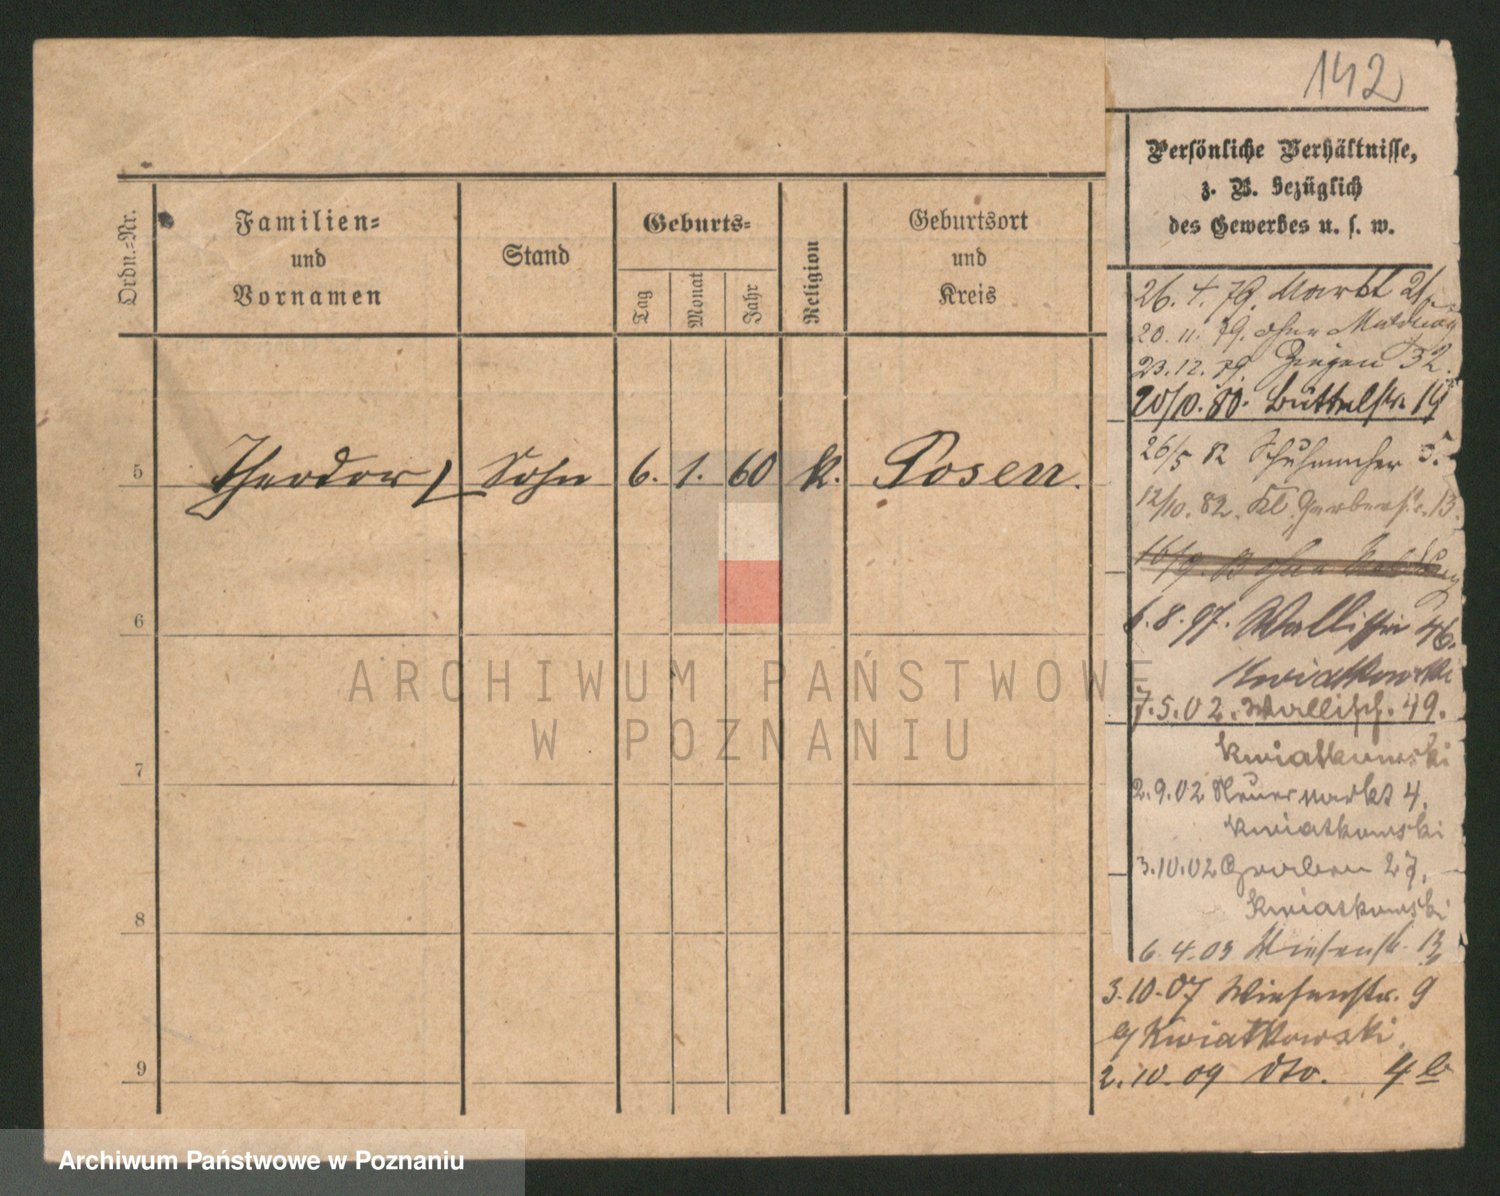 142
Persönliche Verhältnisse,
z. B. bezüglich
des Gewerbes u. s. w.
Ordn.-Nr.
Familien-
und
Vornamen
Stand
Geburts-
Tag
Monat
Jahr
Religion
Geburtsort
und
Kreis
5 Theodor Sohn 6. 1. 60 k. Posen.
6
7
8
9
26. 4. 79. Markt
20. 11. 79. ohne
23. 12. 79. Ziegen 32.
20/10. 80. Büttelstr. 19
26/5 82 Schuhmacher 5.
12/10. 82. Kl. Gerberstr. 13.
6. 8. 97. Wallischei 46.
Kwiatkowski
7. 5. 02. Wallisch. 49.
Kwiatkowski
2. 9. 02 Neuer Markt 4.
Kwiatkowski
3. 10. 02 Graben 27.
Kwiatkowski
6. 4. 03 Wiesenstr. 13
3. 10. 07 Wiesenstr. 9
b/ Kwiatkowski.
2. 10. 09 dto. 4 b
ARCHIWUM PAŃSTWOWE
W POZNANIU
Archiwum Państwowe w Poznaniu